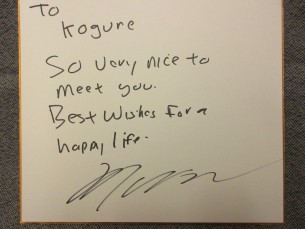 To
Kogure
So very nice to
meet you.
Best Wishes for a
happy life.